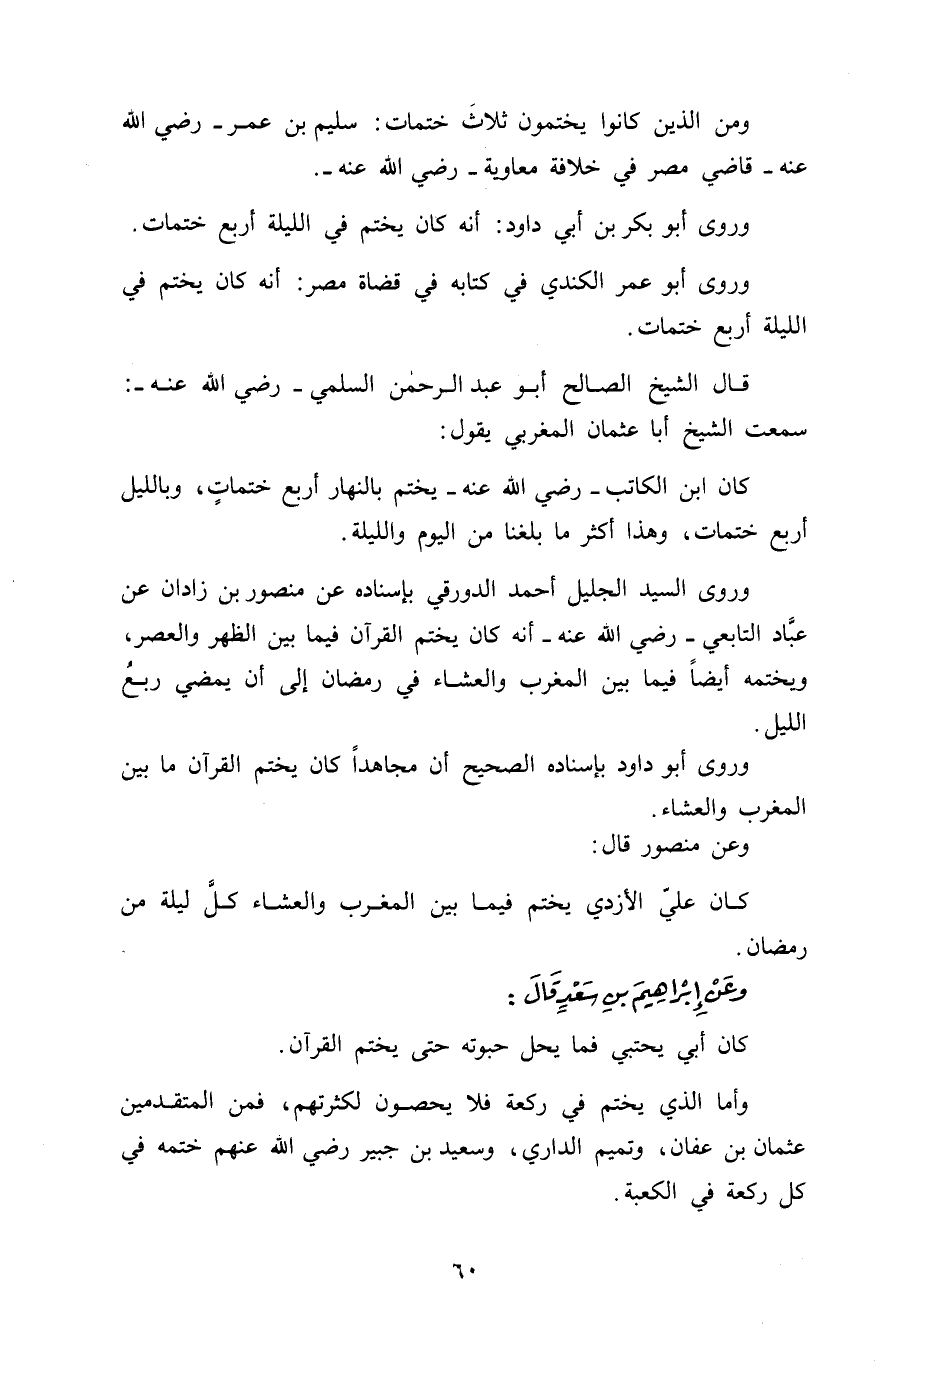 ومن الذين كانوا يختمون ثلاثَ ختمات: سليم بن عمـر ـ رضي الله
عنه ـ قاضي مصر في خلافة معاوية ـ رضي الله عنه ـ.
وروى أبو بكر بن أبي داود: أنه كان يختم في الليلة أربع ختمات.
وروى أبو عمر الكندي في كتابه في قضاة مصر: أنه كان يختم في
الليلة أربع ختمات.
قـال الشيخ الصـالح أبـو عبد الـرحمٰن السلمي ـ رضي الله عنـه ـ:
سمعت الشيخ أبا عثمان المغربي يقول:
كان ابن الكاتب ـ رضي الله عنه ـ يختم بالنهار أربع ختماتٍ، وبالليل
أربع ختمات، وهذا أكثر ما بلغنا من اليوم والليلة.
وروى السيد الجليل أحمد الدورقي بإسناده عن منصور بن زادان عن
عبَّاد التابعي ـ رضي الله عنه ـ أنه كان يختم القرآن فيما بين الظهر والعصر،
ويختمه أيضاً فيما بين المغرب والعشـاء في رمضان إلى أن يمضي ربـعُ
الليل.
وروى أبو داود بإسناده الصحيح أن مجاهداً كان يختم القرآن ما بين
المغرب والعشاء.
وعن منصور قال:
كـان عليّ الأزدي يختم فيمـا بين المغـرب والعشـاء كـلَّ ليلة من
رمضان.
وَعَنْ إِبْرَاهِيمَ بنِ سَعْدٍ قَالَ:
كان أبي يحتبي فما يحل حبوته حتى يختم القرآن.
وأما الذي يختم في ركعة فلا يحصـون لكثرتهم، فمن المتقـدمين
عثمان بن عفان، وتميم الداري، وسعيد بن جبير رضي الله عنهم ختمه في
كل ركعة في الكعبة.
٦٠